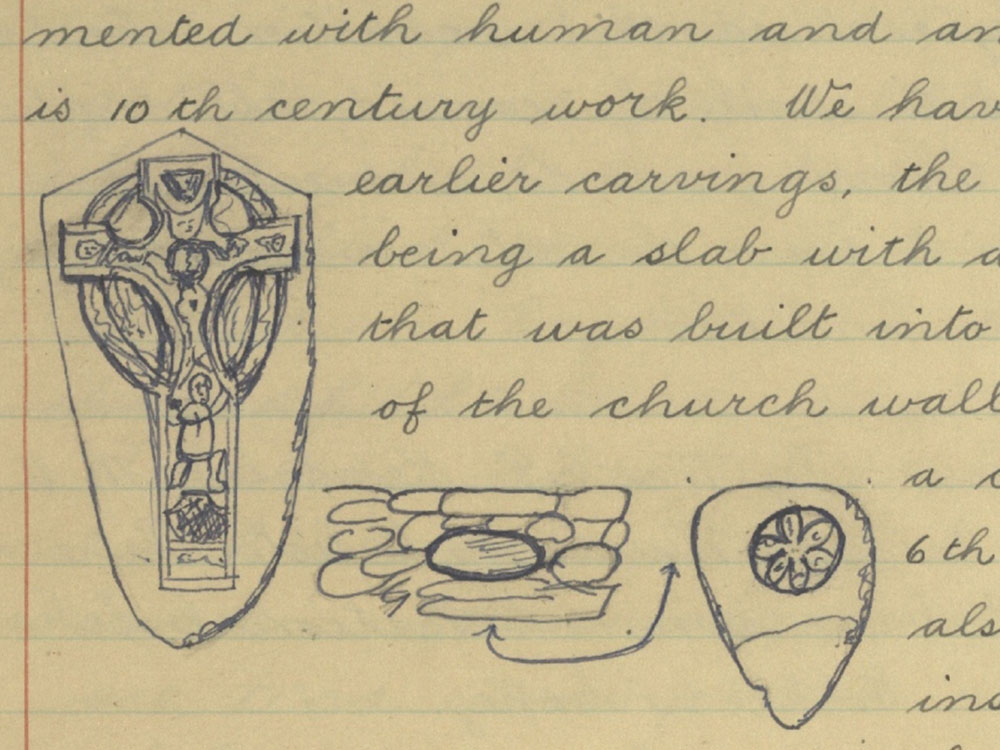 mented with human and an
is 10 th century work. We hav
earlier carvings, the
being a slab with a
that was built into
of the church wall
a c
6 th
als
ins